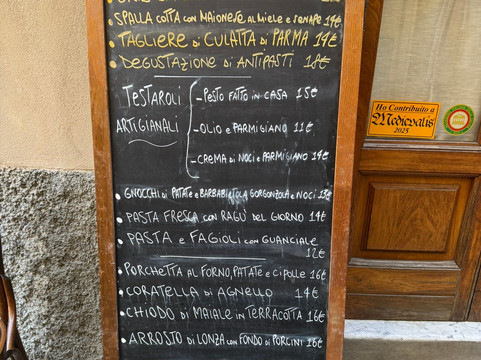 • SPALLA COTTA CON MAIONESE AL MIELE e SENAPE 14€
• TAGLIERE di CULATTA di PARMA 14€
• DEGUSTAZIONE di ANTIPASTI / 18€
TESTAROLI
ARTIGIANALI
- PESTO FATTO IN CASA 15€
- OLIO e PARMIGIANO 11€
- CREMA di NOCI e PARMIGIANO 14€
• GNOCCHI di PATATE e BARBABIETOLA GORGONZOLA e NOCI 13€
• PASTA FRESCA CON RAGU' DEL GIORNO 14€
• PASTA e FAGIOLI CON GUANCIALE
12€
• PORCHETTA AL FORNO, PATATE e CIPOLLE 16€
• CORATELLA di AGNELLO 14€
• CHIODO di MAIALE IN TERRACOTTA 16€
• ARROSTO di LONZA CON FONDO di PORCINI 16€
Ho Contribuito a
Medievalis
2025